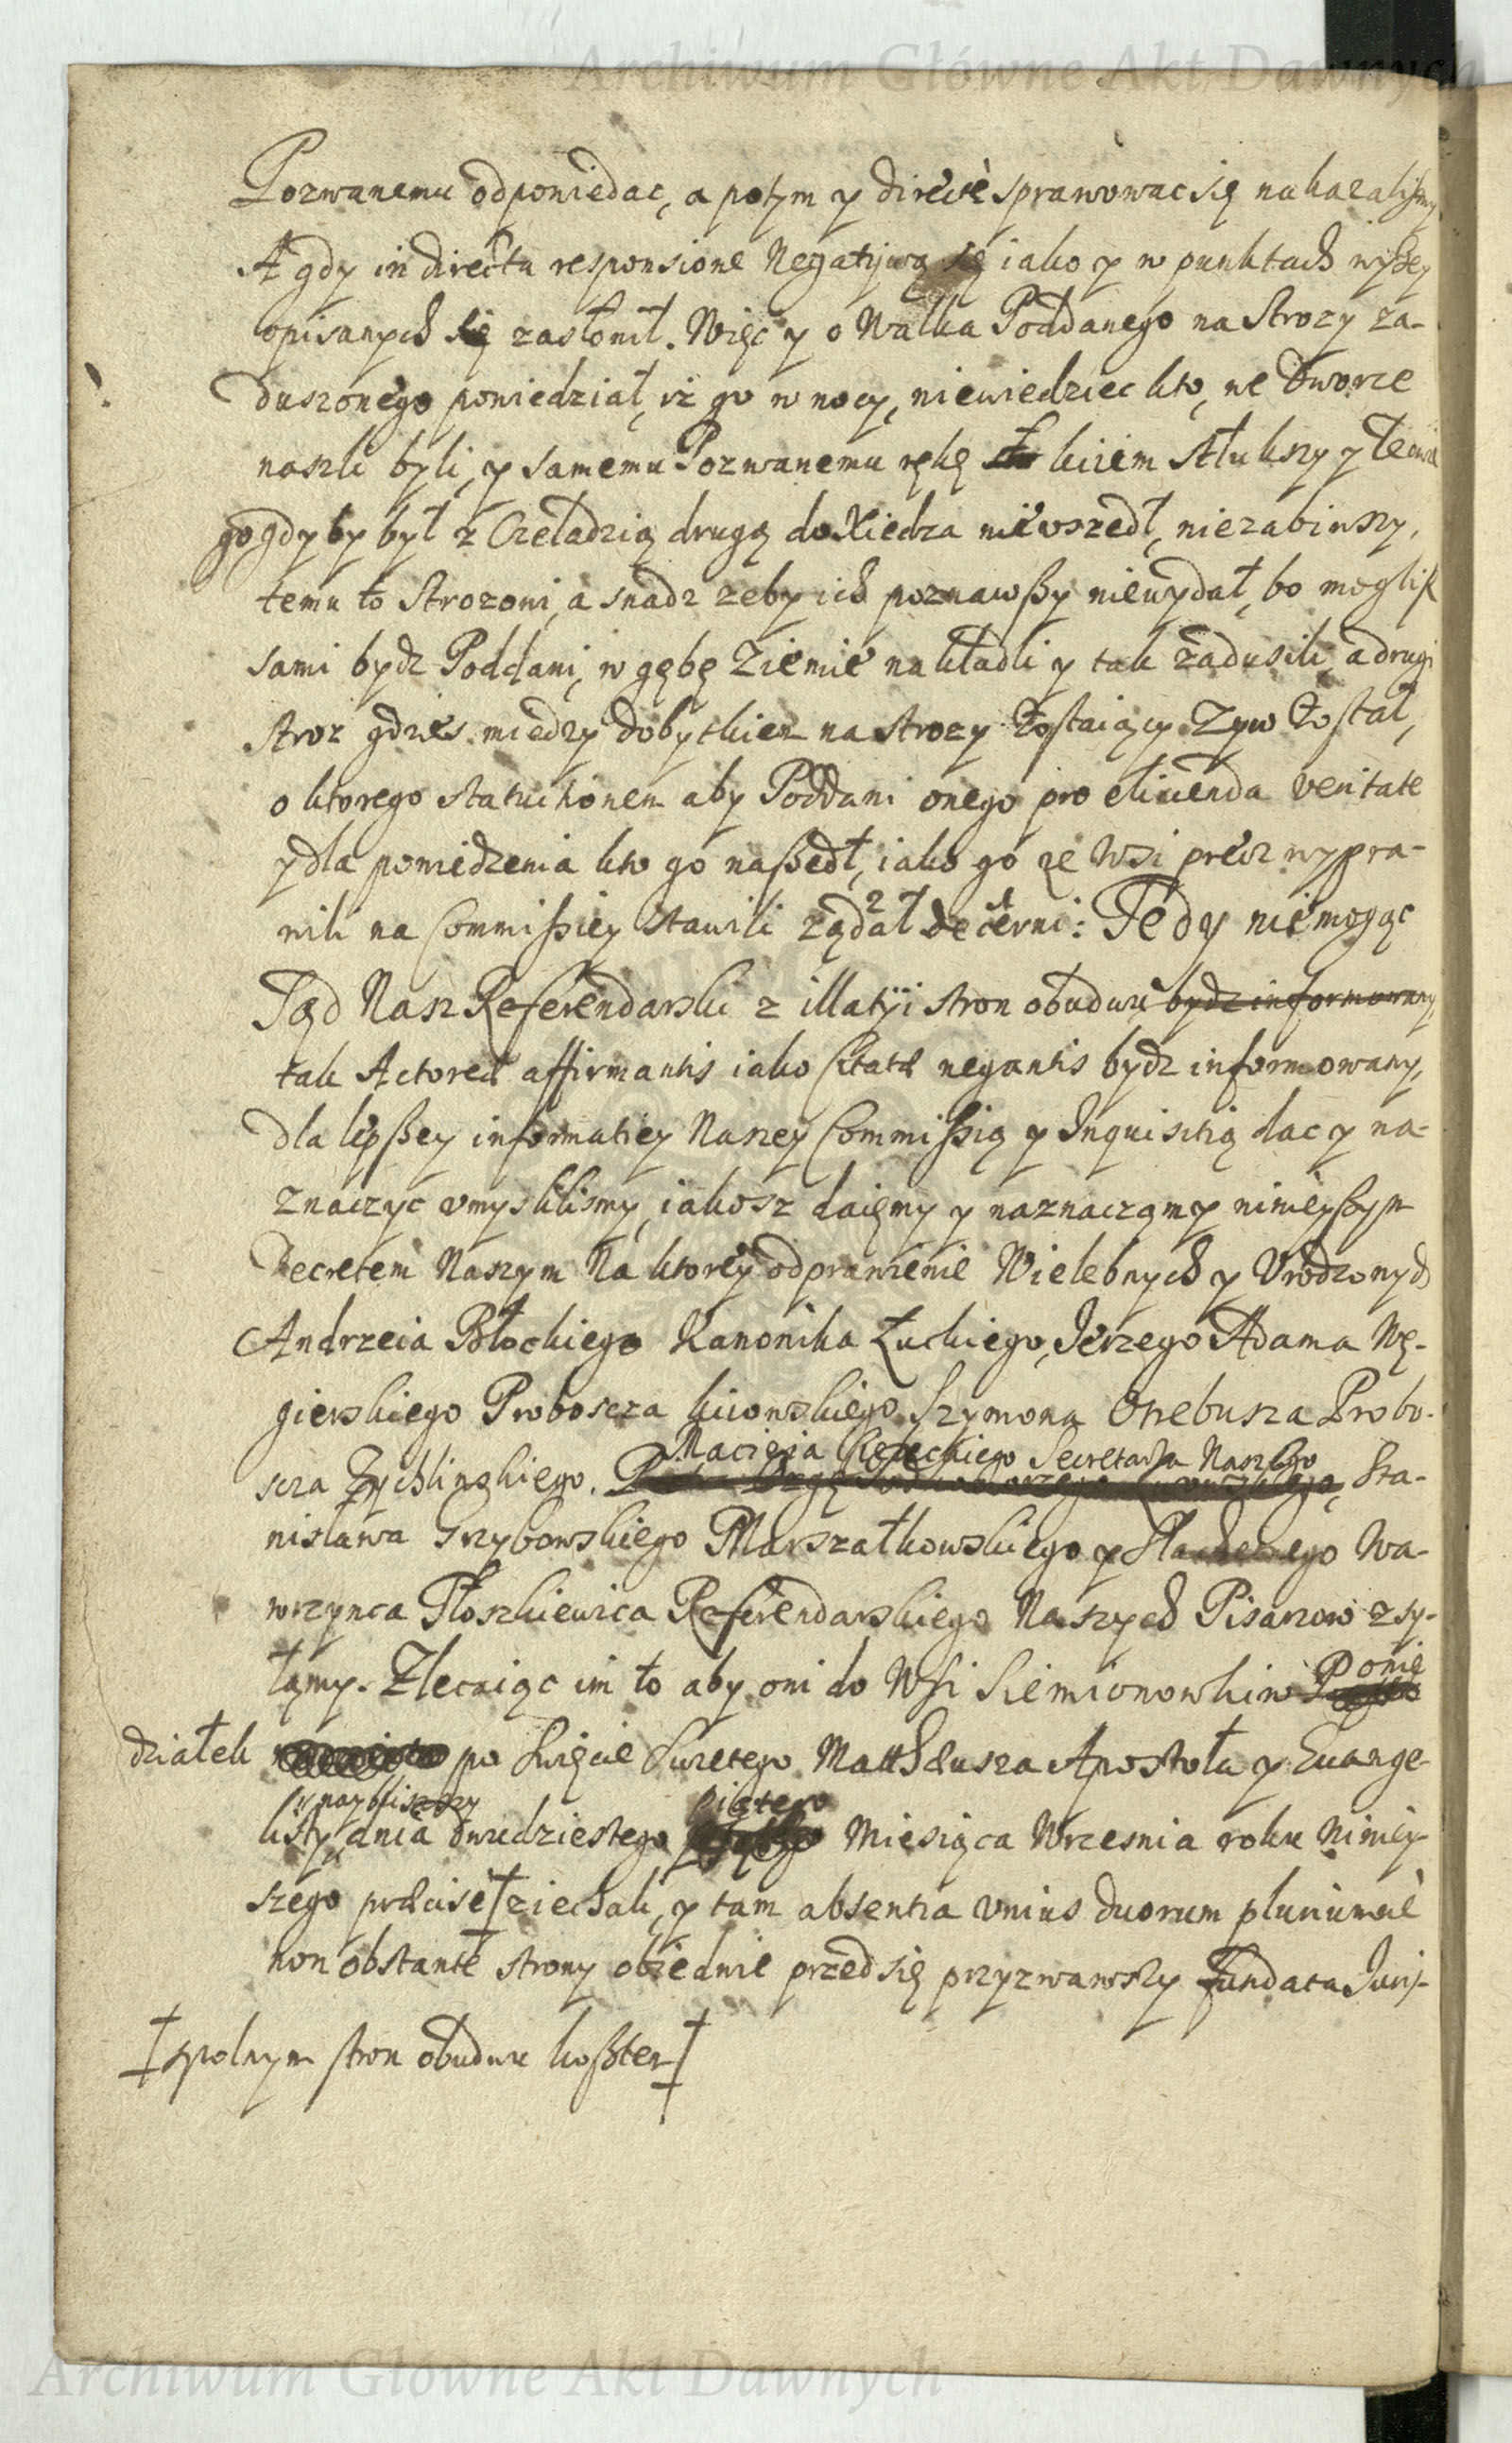 Archiwum Główne Akt Dawnych
Pozwanemu odpowiedac, a potym y directe sprawowac się nakazalismy
A gdy in directa responsione Negatywą się iako y w punktach wyszey
opisanych się zasłonił. Więc y o Walka Poddanego na Strozy za-
duszonego powiedział, iz go w nocy, niewiedziec kto, we Dworze
naszli byli, y samemu Pozwanemu rękę kiiem stłukszy y ledwie
go gdy by był z Czeladzią drugą do Xiedza nie wszedł, niezabiwszy,
temu to Strozowi, a snadz zeby ich poznawszy niewydał, bo mogli
sami bydz Poddani, w gębę Ziemie nakładli y tak zadusili, a drugi
stroz gdzies miedzy dobytkiem na strozy zostaiący Zyw został,
o ktorego statuitionem aby Poddani onego pro elicienda veritate
y dla powiedzenia kto go naszedł, iako go ze Wsi precz wypra-
wili na Commissiey stawili ządał decerni: Tedy niemogąc
Sąd Nasz Referendarski z illatyi stron obudwu bydz informowany,
tak Actorea affirmantis iako Citata negantis bydz informowany,
dla lepszey informatiey Naszey Commissią y Inquisitią dac y na-
znaczyc vmyslilismy, iakosz daięmy y naznaczamy ninieyszym
Decretem Naszym Na ktorey odprawienie Wielebnych y Vrodzonych
Andrzeia Błockiego Kanonika Łuckiego, Jerzego Adama Wę-
gierskiego Proboscza kiiowskiego Szymona Otrebusza Probo-
Macieia Secretarza Naszego
scza Zychlinskiego. Sta-
nisława Grzybowskiego Marszałkowskiego y Wa-
wrzynca Płoszkiewica Referendarskiego Naszych Pisarzow zsy-
łamy. Zlecaiąc im to aby oni do Wsi Siemionowkiw
Ponie
działek po Swięcie Swietego Mattheusza Apostoła y Euange-
naybliszszy piątego
listy, dnia dwudziestego Miesiąca Wrzesnia roku niniey-
szego praecise ziechali, y tam absentia vnius duorum pluriumue
non obstante strony obiedwie przed się przyzwawszy fundata Juris-
spolnym stron obudwu kosztem
Archiwum Główne Akt Dawnych